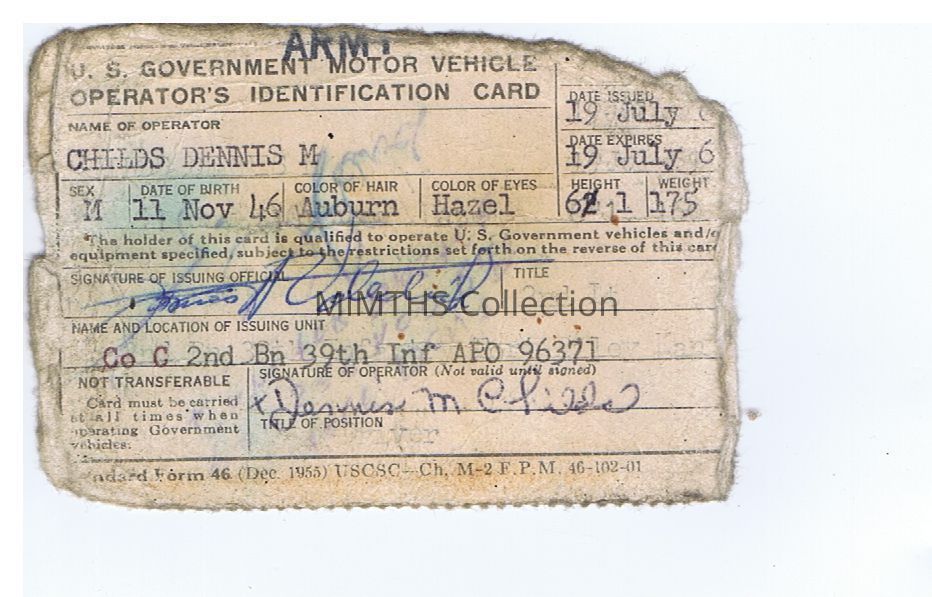 ARMY
U. S. GOVERNMENT MOTOR VEHICLE
OPERATOR'S IDENTIFICATION CARD
DATE ISSUED
19 July
NAME OF OPERATOR
CHILDS DENNIS M
DATE EXPIRES
19 July 6
SEX
M
DATE OF BIRTH
11 Nov 46
COLOR OF HAIR
Auburn
COLOR OF EYES
Hazel
HEIGHT
WEIGHT
175
The holder of this card is qualified to operate U. S. Government vehicles and/o
equipment specified, subject to the restrictions set forth on the reverse of this card
SIGNATURE OF ISSUING OFFICIAL
TITLE
MIMTHS Collection
NAME AND LOCATION OF ISSUING UNIT
Co C 2nd Bn 39th Inf APO 96371
NOT TRANSFERABLE
Card must be carried
at all times when
operating Government
vehicles.
SIGNATURE OF OPERATOR (Not valid until signed)
x Dennis M Childs
TITLE OF POSITION
ndard Form 46 (Dec. 1955) USCSC—Ch, M-2 F.P.M. 46-102-01